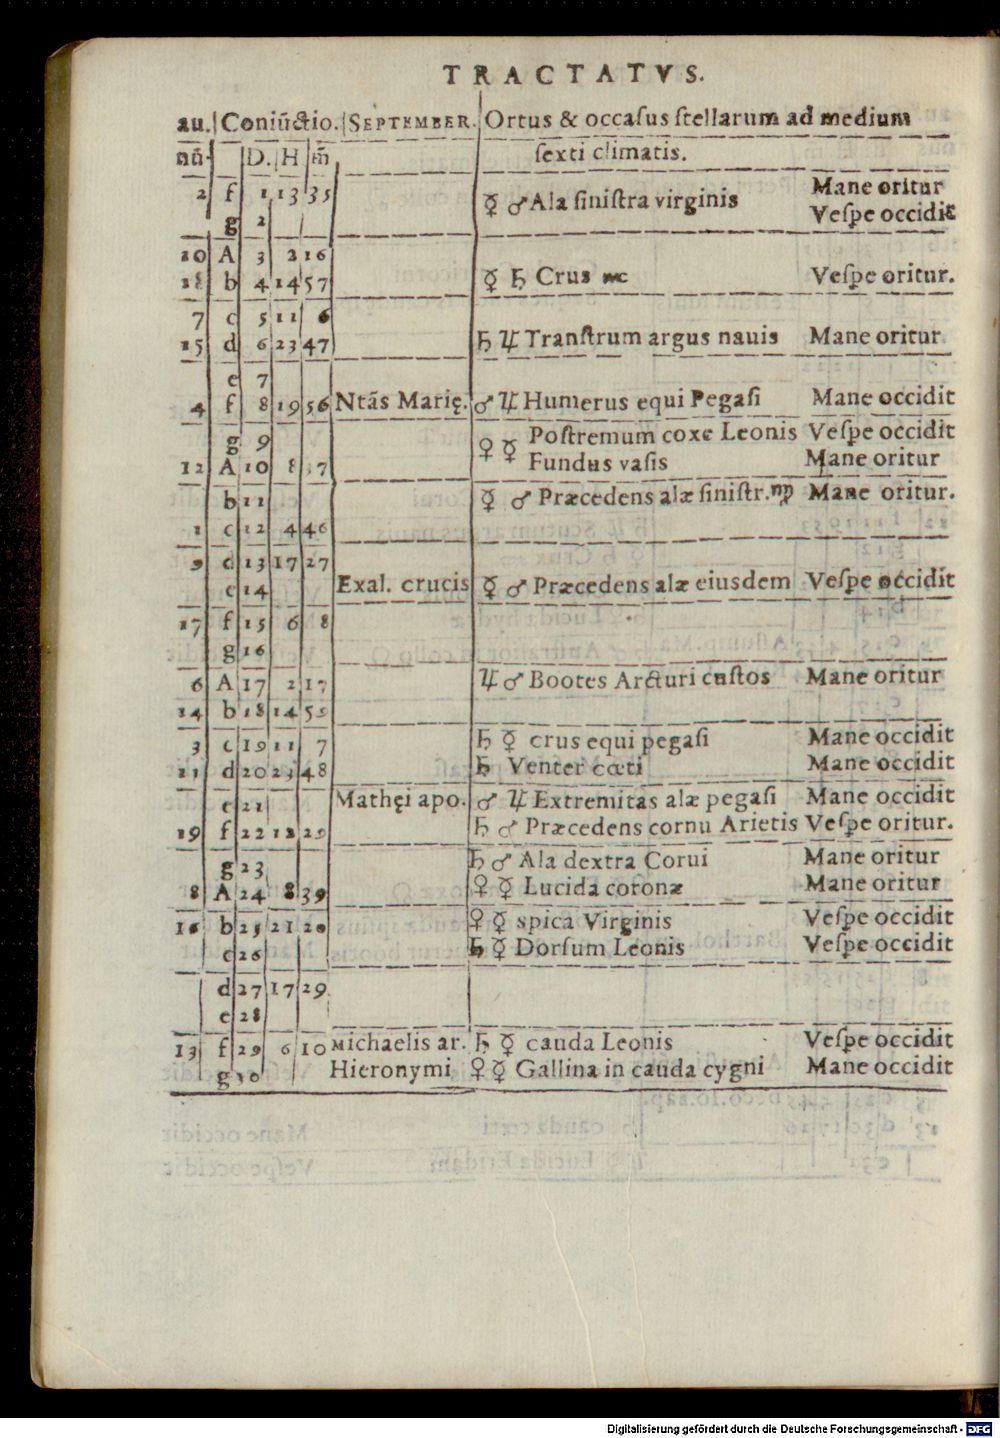 TRACTATVS.
au. Coniũctio. SEPTEMBER. Ortus & occaſus ſtellarum ad medium
nũ. D. H m̃ ſexti climatis.
2 f 1 13 35 ☿ ♂ Ala ſiniſtra virginis Mane oritur
g 2 Veſpe occidit
10 A 3 2 16
18 b 4 14 57 ☿ ♄ Crus Veſpe oritur.
7 c 5 11 6
15 d 6 23 47 ♄ ♃ Tranſtrum argus nauis Mane oritur
e 7
4 f 8 19 56 Ntãs Marię. ♂ ♃ Humerus equi Pegaſi Mane occidit
g 9 ♀ ☿ Poſtremum coxe Leonis Veſpe occidit
12 A 10 8 37 Fundus vaſis Mane oritur
b 11 ☿ ♂ Præcedens alæ ſiniſtr. ♍ Mane oritur.
1 c 12 4 46
9 d 13 17 27
e 14 Exal. crucis ☿ ♂ Præcedens alæ eiusdem Veſpe occidit
17 f 15 6 8
g 16
6 A 17 2 17 ♃ ♂ Bootes Arcturi cuſtos Mane oritur
14 b 18 14 5
3 c 19 11 7 ♄ ☿ crus equi pegaſi Mane occidit
11 d 20 23 48 ♄ Venter cœti Mane occidit
e 21 Mathęi apo. ♂ ♃ Extremitas alæ pegaſi Mane occidit
19 f 22 12 29 ♄ ♂ Præcedens cornu Arietis Veſpe oritur.
g 23 ♄ ♂ Ala dextra Corui Mane oritur
8 A 24 8 39 ♀ ☿ Lucida coronæ Mane oritur
16 b 25 21 20 ♀ ☿ spica Virginis Veſpe occidit
c 26 ♄ ☿ Dorſum Leonis Veſpe occidit
d 27 17 29
e 28
13 f 29 6 10 Michaelis ar. ♄ ☿ cauda Leonis Veſpe occidit
g 30 Hieronymi ♀ ☿ Gallina in cauda cygni Mane occidit
Digitalisierung gefördert durch die Deutsche Forschungsgemeinschaft - DFG